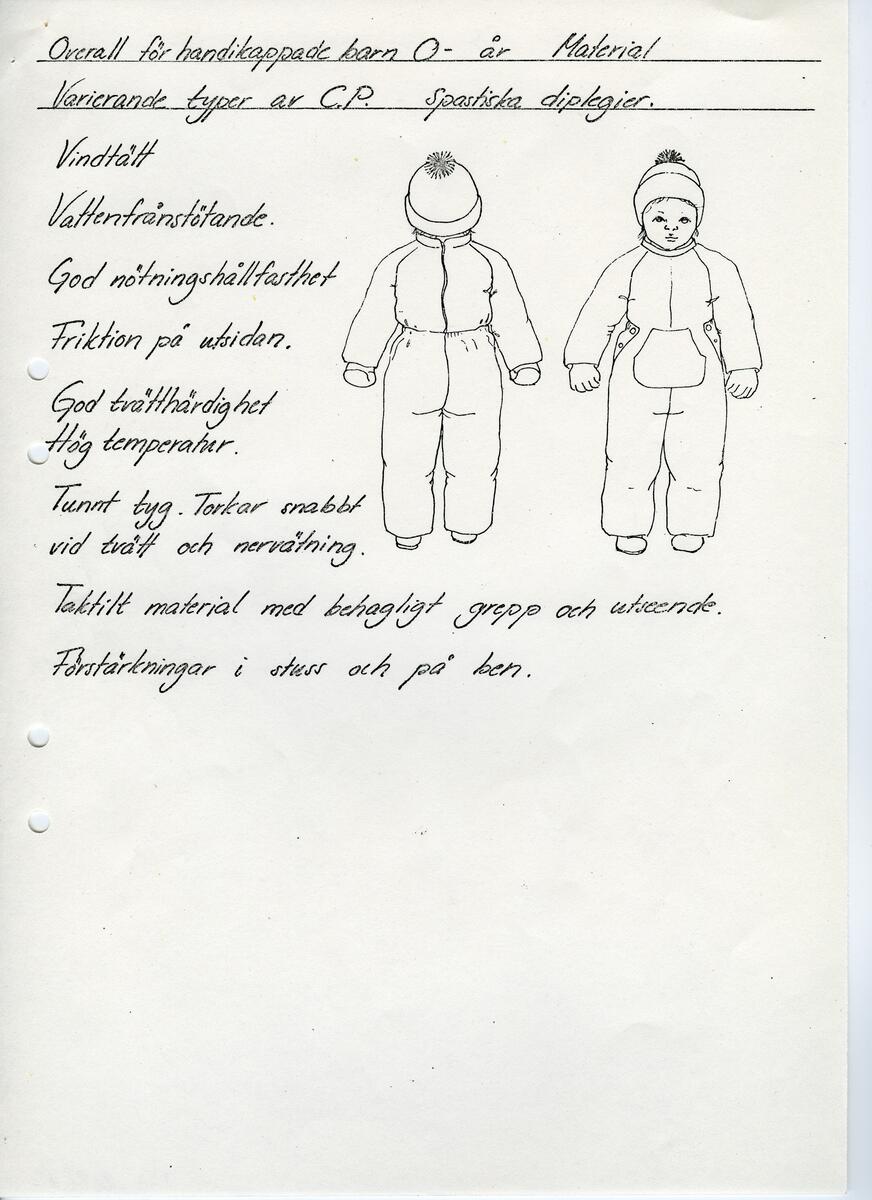 Overall för handikappade barn 0- år Material
Varierande typer av C.P. Spastiska diplegier.
Vindtätt
Vattenfrånstötande.
God nötningshållfasthet
Friktion på utsidan.
God tvätthärdighet
Hög temperatur.
Tunnt tyg. Torkar snabbt
vid tvätt och nervätning.
Taktilt material med behagligt grepp och utseende.
Förstärkningar i stuss och på ben.